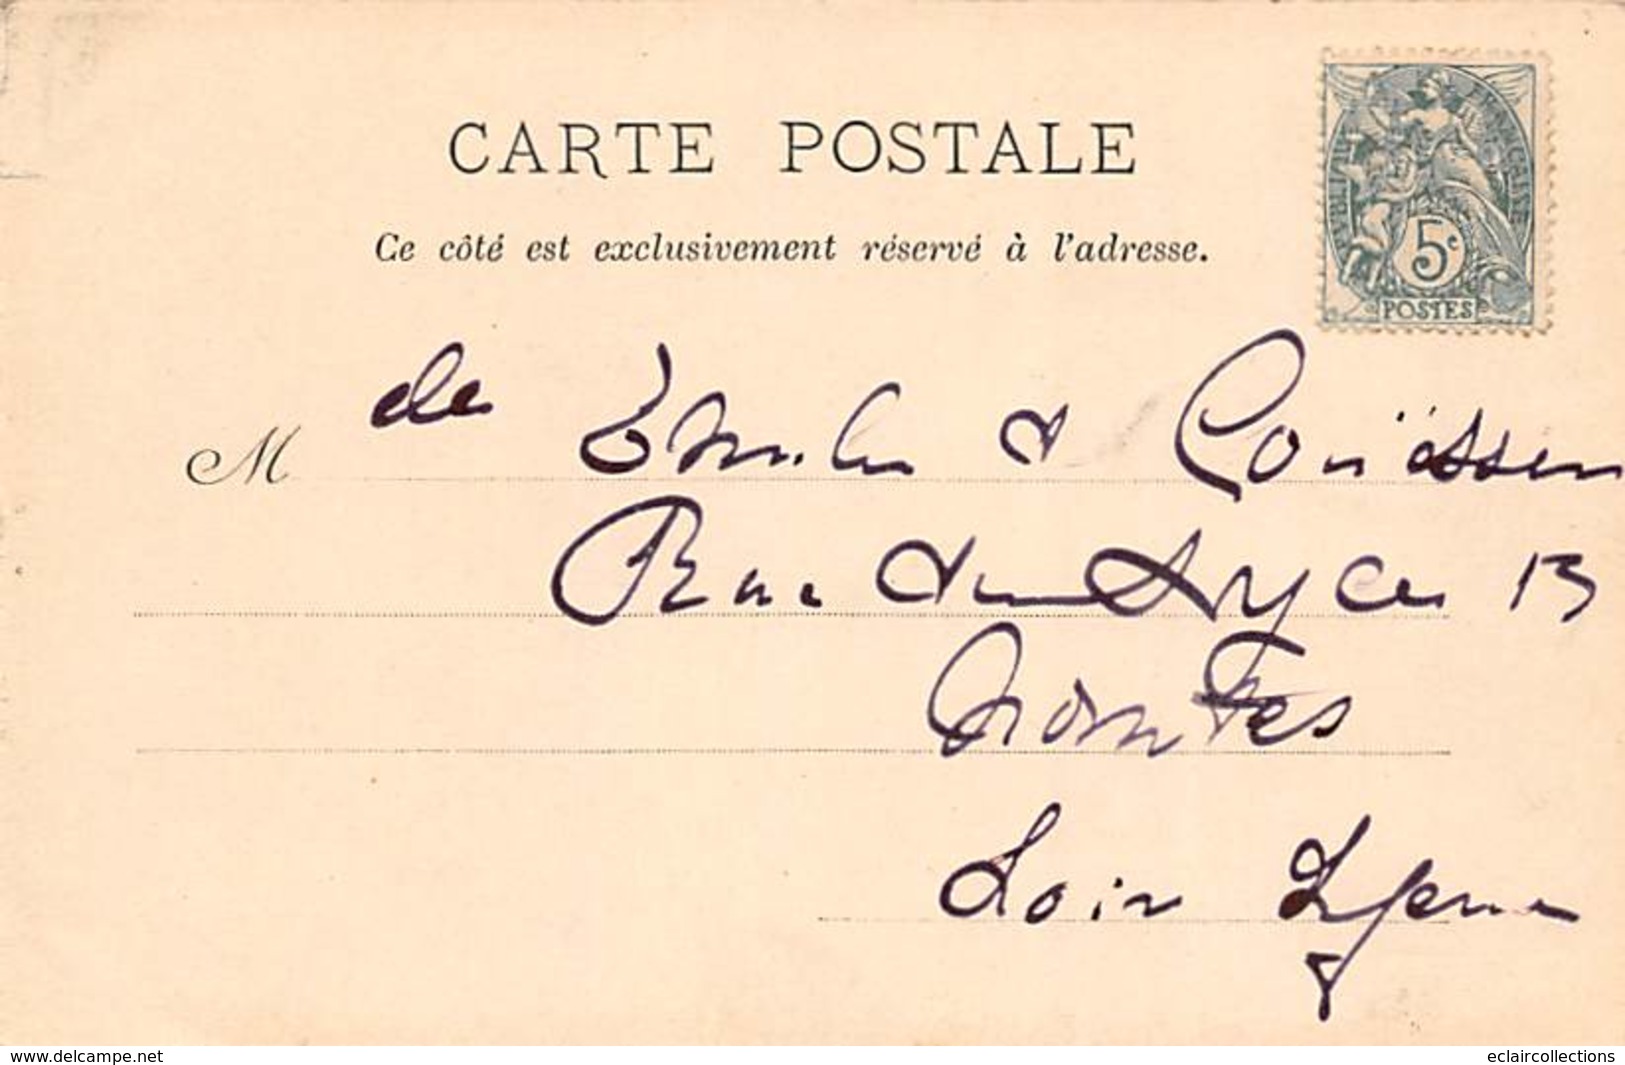 CARTE POSTALE
Ce côté est exclusivement réservé à l'adresse.
RÉPUBLIQUE FRANÇAISE
5c
POSTES
M de
Rue du Lycée 13
Nantes
Loir Inferre
www.delcampe.net
eclaircollections